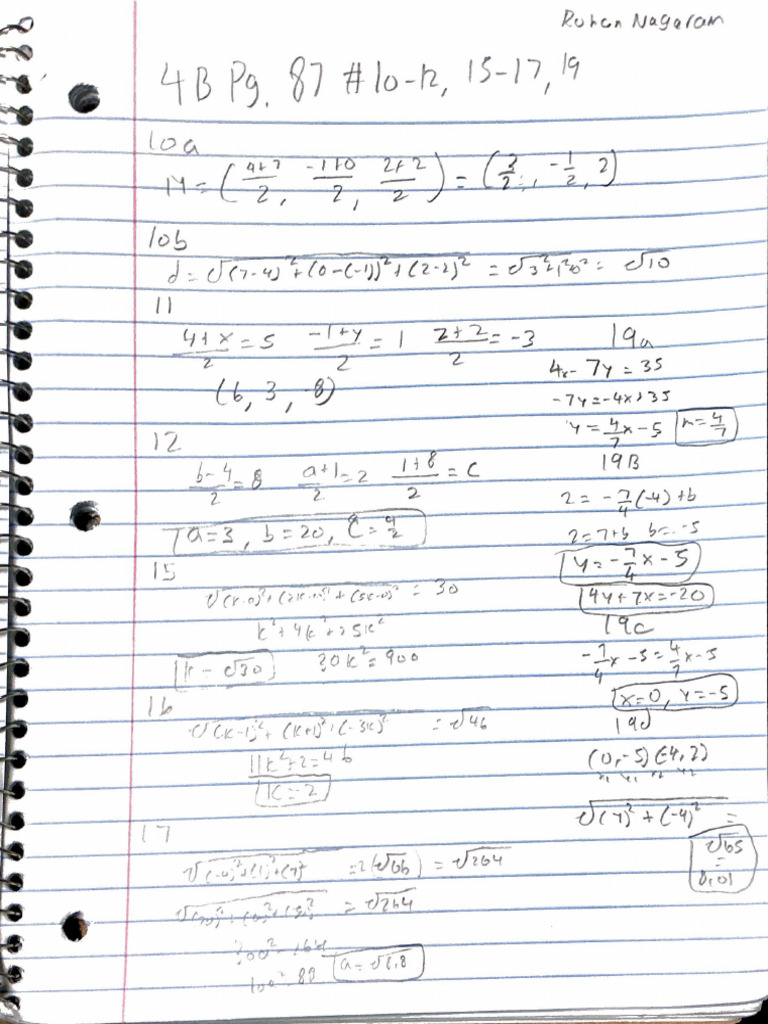 Ruhan Nagaram
4B Pg. 87 #10-12, 15-17, 19
10a
M = (4+7/2, -1+0/2, 2+2/2) = (3/2, -1/2, 2)
10b
d = √(7-4)²+(0-(-1))²+(2-2)² = √3²+1²+0² = √10
11
4+x/2 = 5 -1+y/2 = 1 2+z/2 = -3
(6, 3, -8)
12
b-4/2 = 8 a+1/2 = 2 1+8/2 = C
a=3, b=20, C=9/2
15
√(k-0)²+(2k-0)²+(5k-0)² = 30
k²+4k²+25k²
30k² = 900
k = √30
16
√(k-1)²+(k+1)²+(-3k)² = √46
11k²+2=46
k=2
17
= 2(√66) = √264
= √264
a=√8.8
19a
4x-7y = 35
-7y=-4x+35
y = 4/7x-5 m=4/7
19B
2 = -7/4(-4)+b
2=7+b b=-5
y=-7/4x-5
4y+7x=-20
19c
-7/4x-5=4/7x-5
x=0, y=-5
19d
(0,-5) (-4,2)
x₁ y₁ x₂ y₂
√(7)²+(-4)² =
√65
=